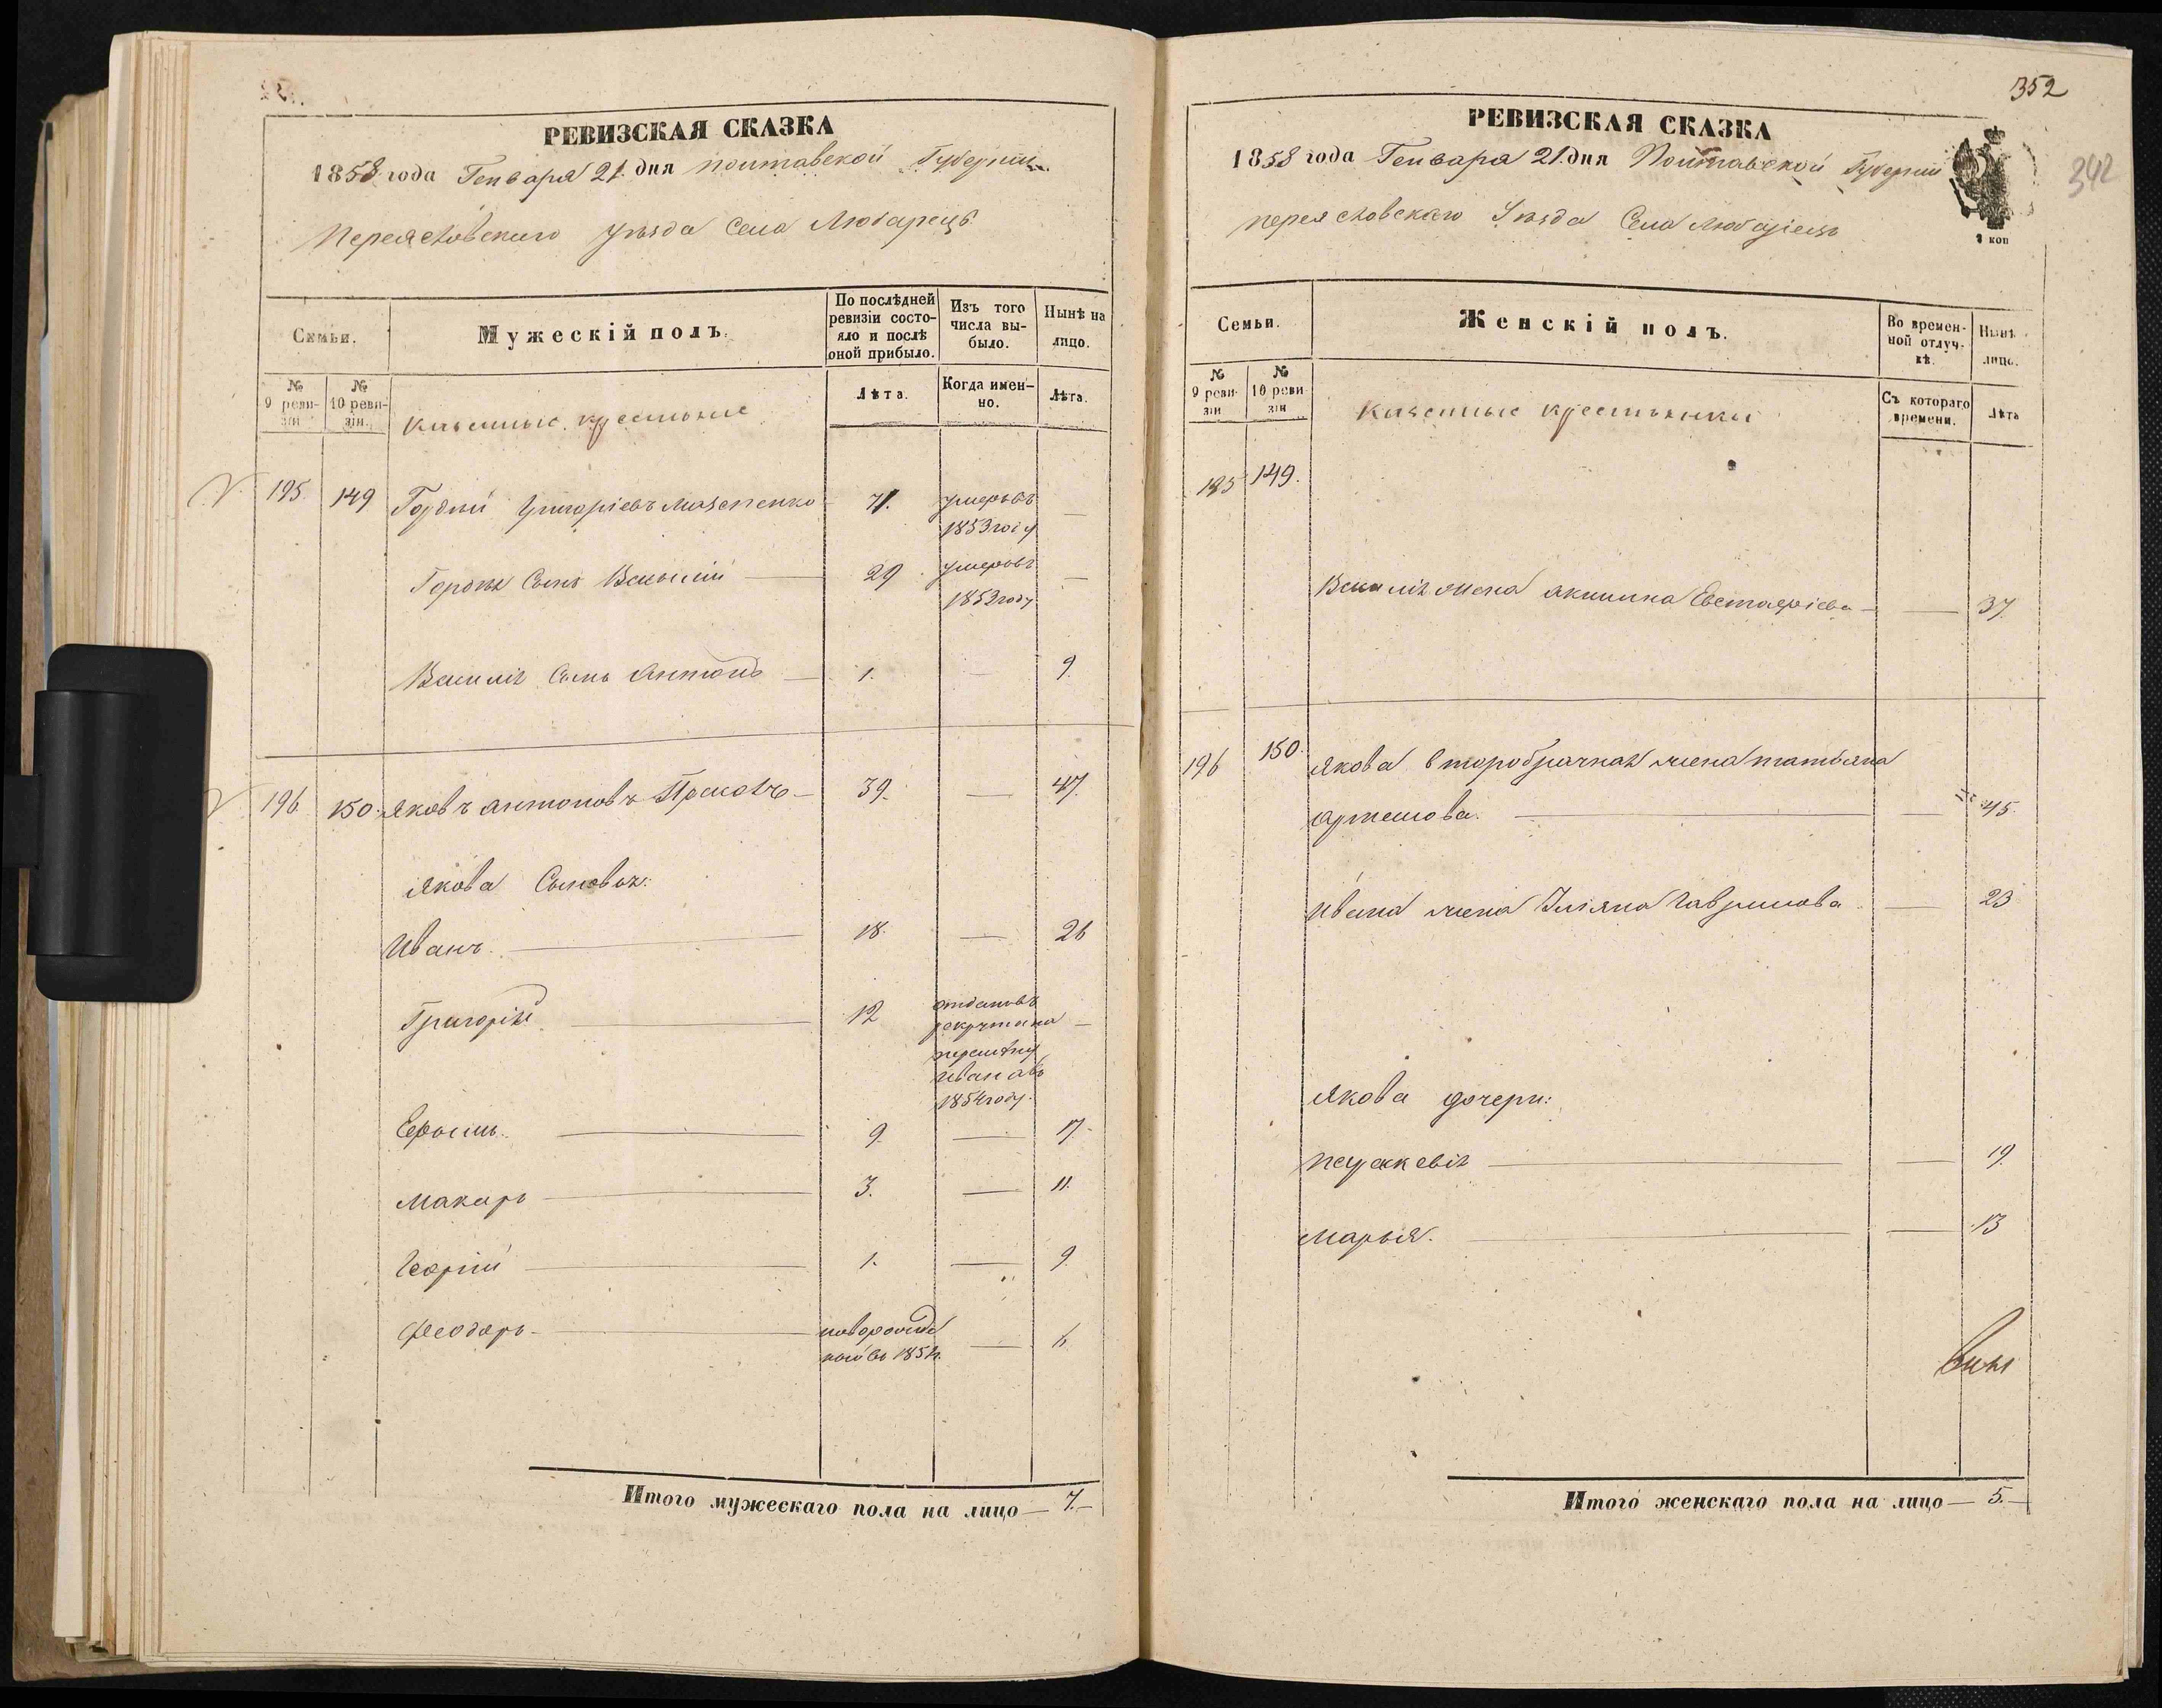 РЕВИЗСКАЯ СКАЗКА
1858 года Генваря 21 дня Полтавской Губернии
Переясловскаго Уѣзда Села Любарецъ
Семьи.
Мужескій полъ.
По послѣдней ревизіи состо-
яло и послѣ оной прибыло.
Изъ того числа вы-
было.
Нынѣ на лицо.
№ 9 реви-
зіи
№ 10 реви-
зіи.
Казенные крестьяне
Лѣта.
Когда имен-
но.
Лѣта.
195. 149 Гордѣй Григоріевъ Мазепенко 71. умеръ въ —
1853 году
Гордѣя Сынъ Василій — 29 умеръ въ —
1853 году
Василія Сынъ Антонъ — 1. — 9.
196 150. Яковъ Антоновъ — 39. — 47.
Якова Сыновья:
Иванъ. — 18. — 26
Григорій — 12 отданъ въ
рекрута на —
Ивана въ
1854 году.
Ефимъ. — 9. — 17.
Макаръ — 3. — 11.
Георгій — 1. — 9.
Феодоръ — новорожден
ный въ 185 —
Итого мужескаго пола на лицо — 7. —
352
342
РЕВИЗСКАЯ СКАЗКА
1858 года Генваря 21. дня Полтавской Губерніи
переясловскаго Уѣзда Села Любарецъ
1 коп
Семьи.
Женскій полъ.
Во времен-
ной отлуч-
кѣ.
Нынѣ
лицо.
№ 9 реви-
зіи
№ 10 реви-
зіи
Казенные крестьянки
Съ котораго времени.
Лѣта
195 149.
Василія жена Акилина Евстафіева — — 37
196 150. Якова второбрачная жена татьяна
Артемова. — — 45.
Ивана жена Ульяна Гаврилова — 23
Якова дочери:
Параскевія — — 19.
Марья. — — 13
Итого женскаго пола на лицо — 5. —